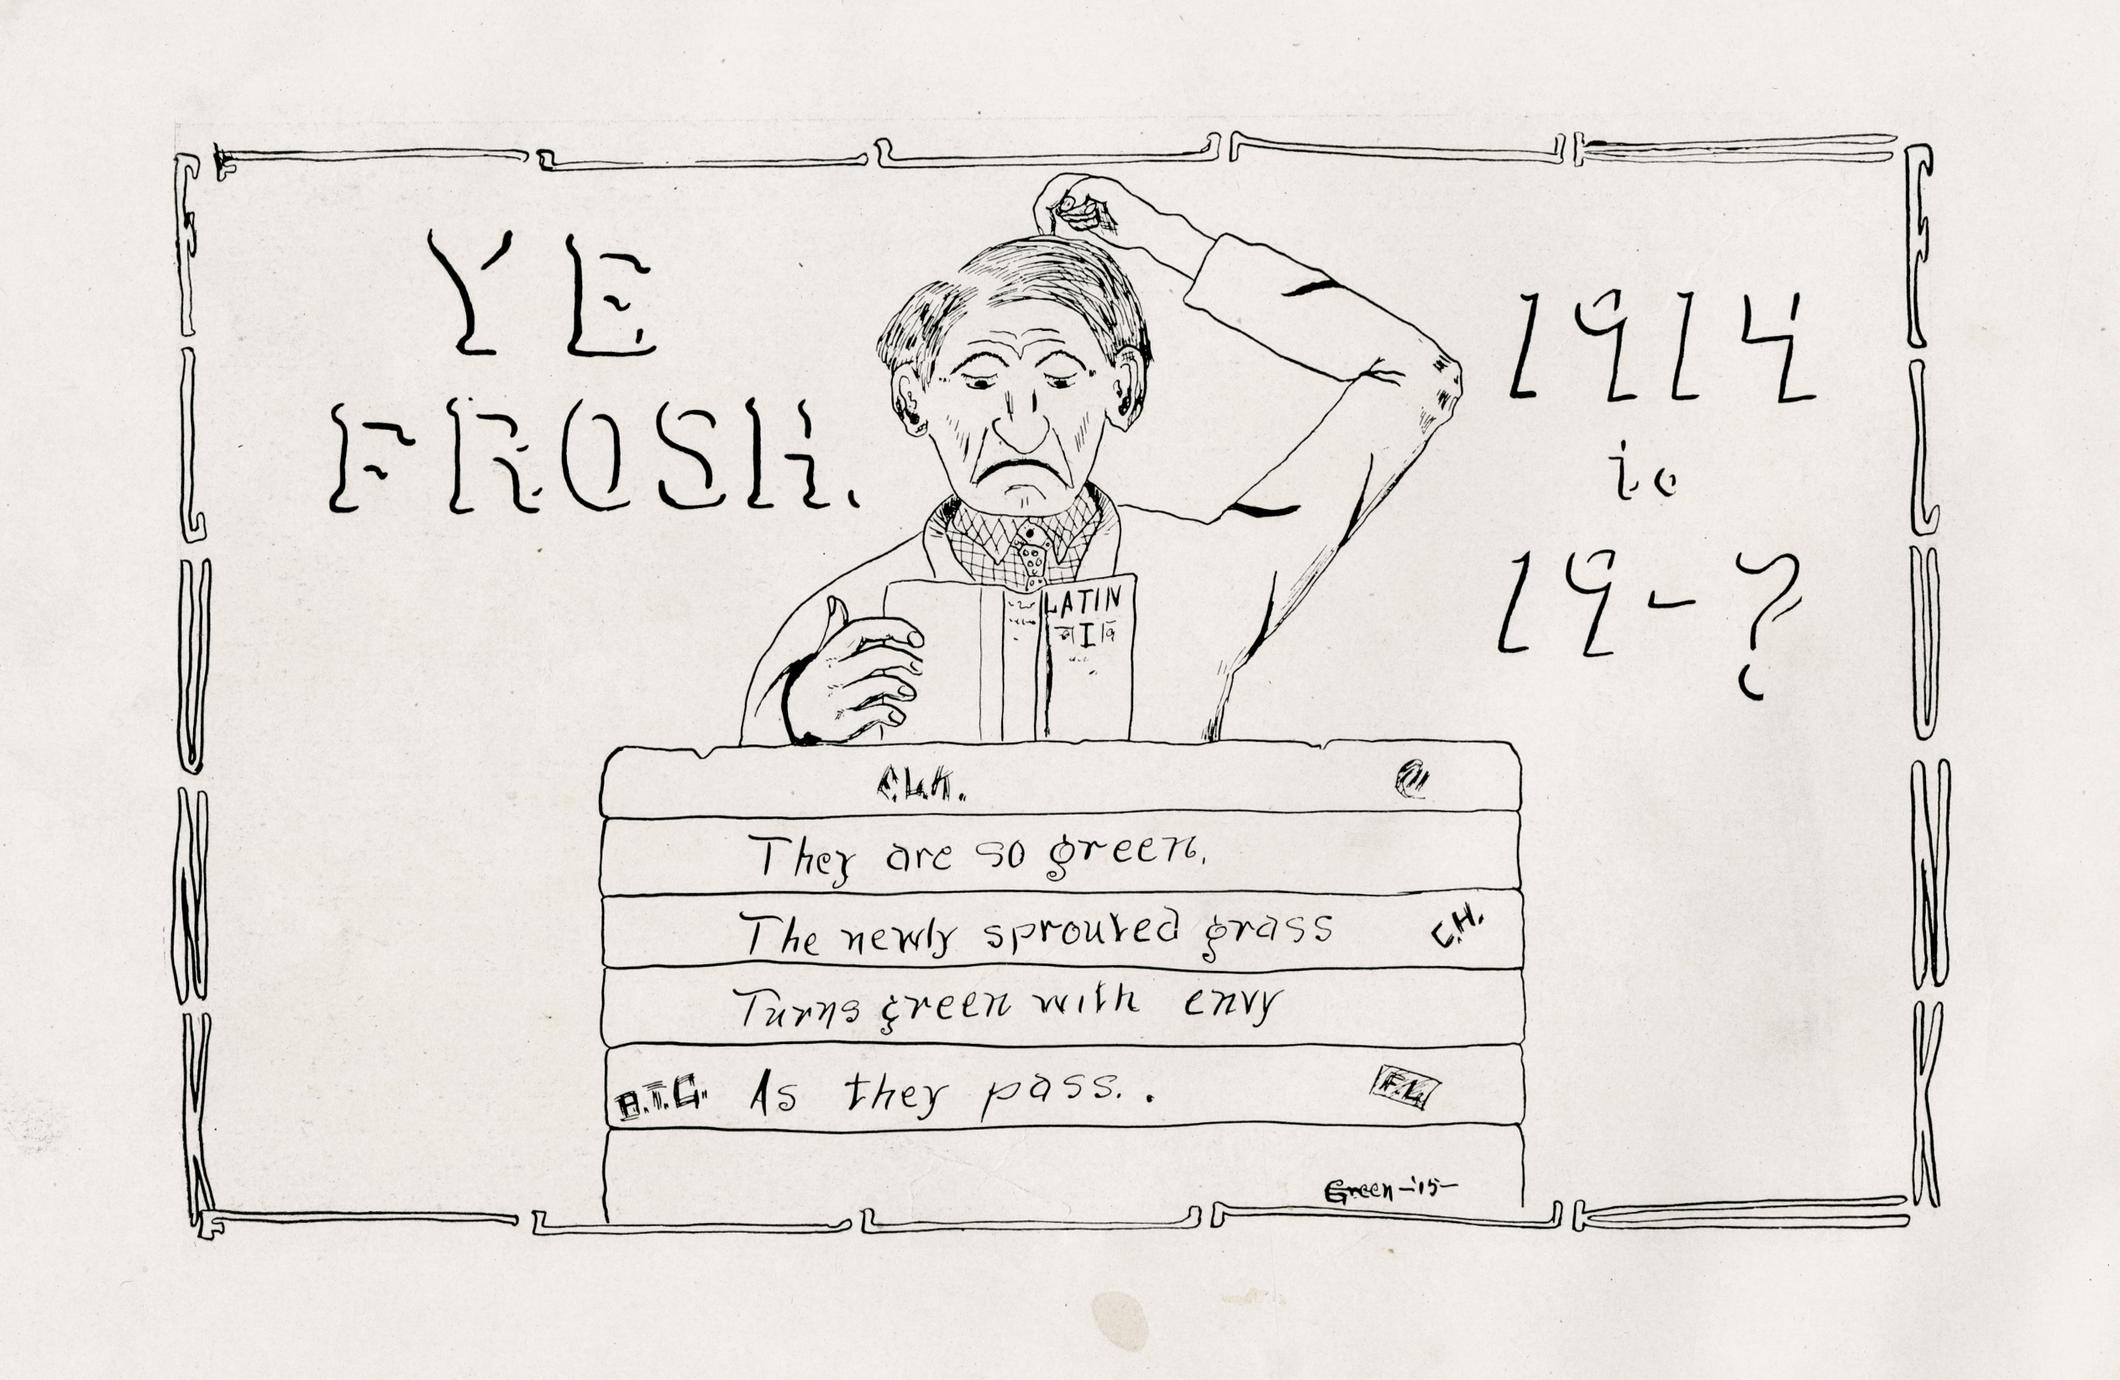 YE
FROSH.
1914
to
19-?
LATIN
I
They are so green.
The newly sprouted grass
C.H.
Turns green with envy
As they pass..
F.L.
Green-'15-